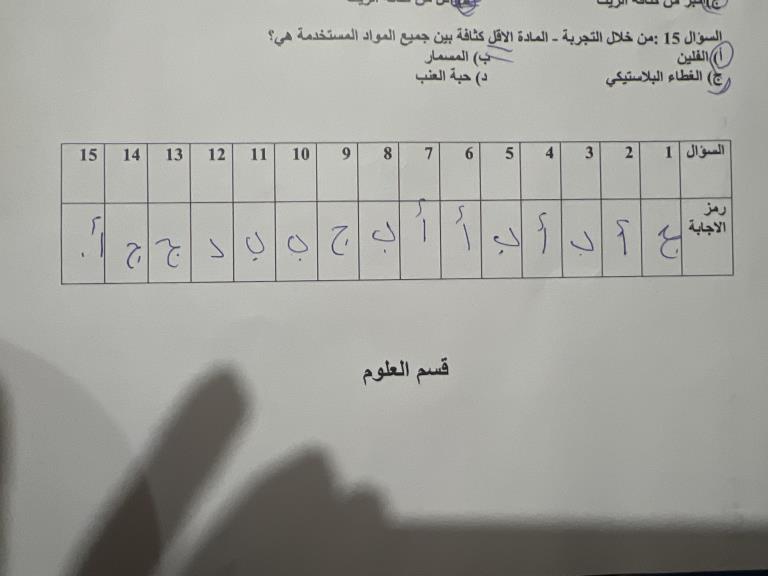 السؤال 15 :من خلال التجربة - المادة الاقل كثافة بين جميع المواد المستخدمة هي؟
أ) الفلين ب) المسمار
ج) الغطاء البلاستيكي د) حبة العنب
السؤال 1 2 3 4 5 6 7 8 9 10 11 12 13 14 15
رمز الاجابة ج أ ب أ ب أ أ ب ج ب ب د ج ج أ
قسم العلوم